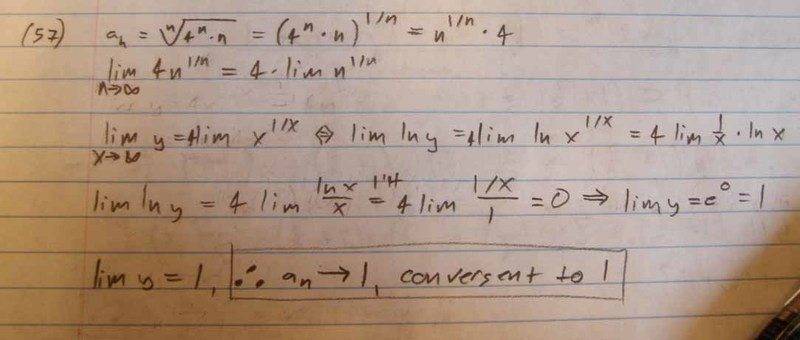 (57) aₙ = ⁿ√(4ⁿ·n) = (4ⁿ·n)^(1/n) = n^(1/n)·4
lim_(n→∞) 4n^(1/n) = 4·lim n^(1/n)
lim_(x→∞) y = 4lim x^(1/x) ⇔ lim ln y = 4lim ln x^(1/x) = 4 lim 1/x · ln x
lim ln y = 4 lim (ln x)/x =^(L'H) 4 lim (1/x)/1 = 0 ⇒ lim y = e^0 = 1
lim y = 1, ∴ aₙ → 1, convergent to 1